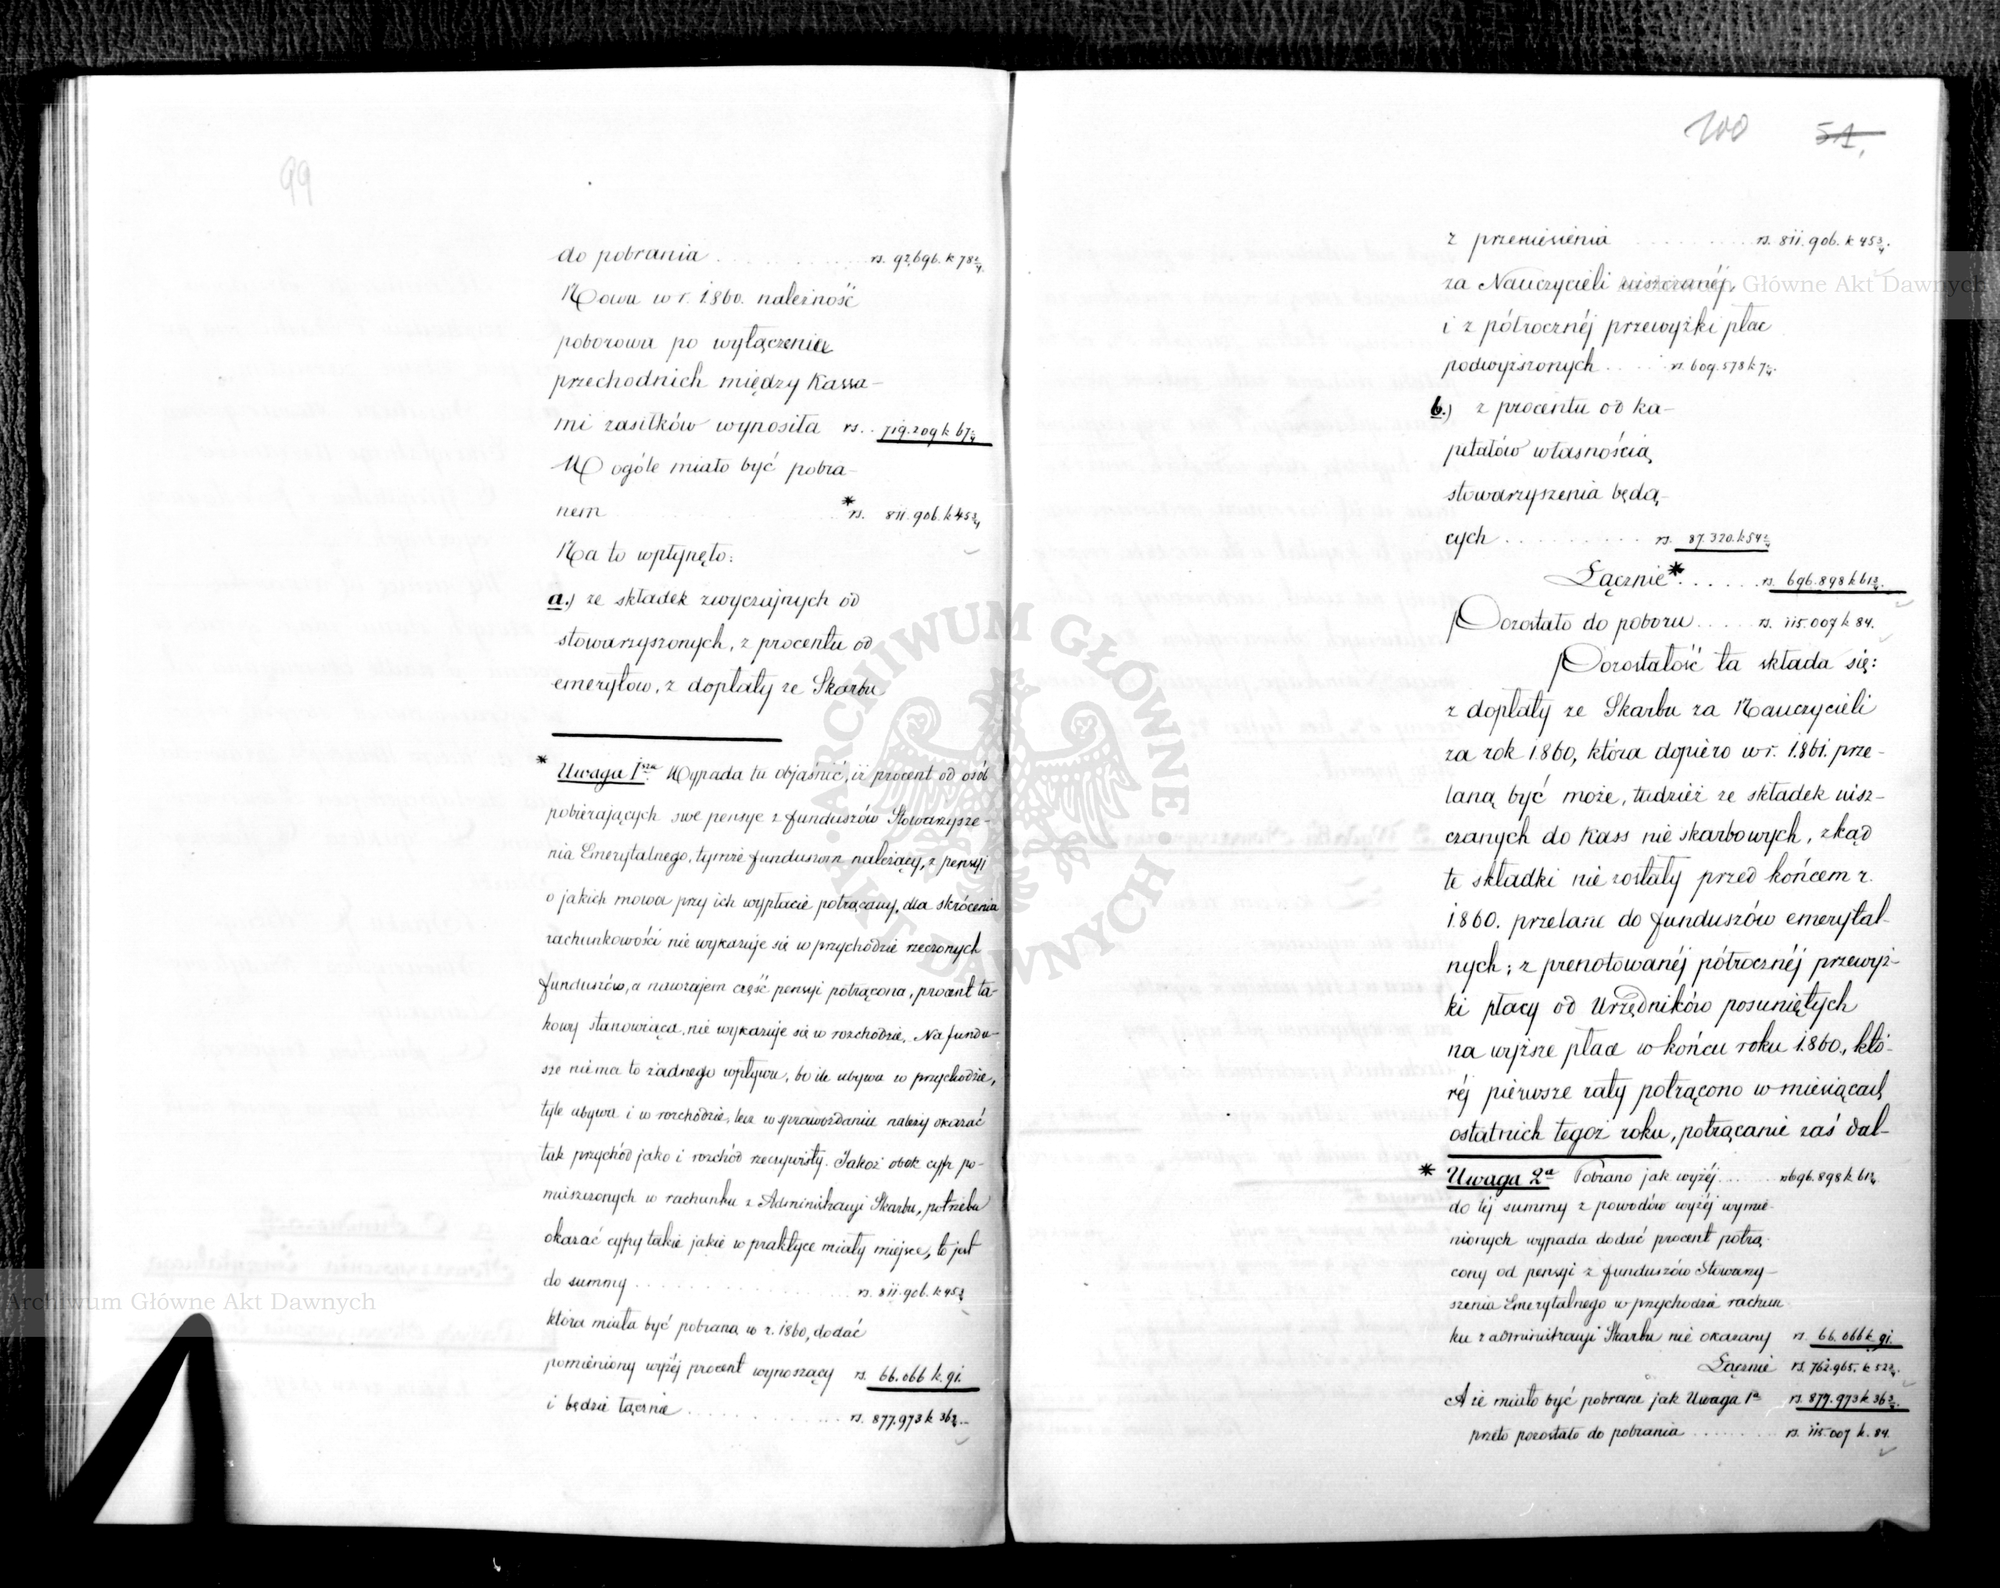 99
do pobrania . . . . . . . . . . rs. 92,696. k 78 2/4.
Nowa w r. 1860. należność
poborowa po wyłączeniu
przechodnich między Kassa-
mi zasiłków wynosiła rs. . 719.209 k 67 1/4
W ogóle miało być pobra-
nem . . . . . . . . . . *rs. 811.906. k 45 3/4
Na to wpłynęło:
a.) ze składek zwyczajnych od
stowarzyszonych, z procentu od
emerytów, z dopłaty ze Skarbu
* Uwaga 1sza Wypada tu objaśnić, iż procent od osób
pobierających swe pensye z funduszów Stowarzysze-
nia Emerytalnego, tymże funduszom należący, z pensyi
o jakich mowa przy ich wypłacie potrącany, dla skrócenia
rachunkowości nie wykazuje się w przychodzie rzeczonych
funduszów, a nawzajem część pensyi potrącona, procent ta-
kowy stanowiąca, nie wykazuje się w rozchodzie. Na fundu-
sze niema to żadnego wpływu, bo ile ubywa w przychodzie,
tyle ubywa i w rozchodzie; lecz w sprawozdaniu należy okazać
tak przychód jako i rozchód rzeczywisty. Jakoż obok cyfr po-
mieszczonych w rachunku z Administracyi Skarbu, potrzeba
okazać cyfry takie jakie w praktyce miały miejsce, to jest
do summy . . . . . . . . . . rs. 811.906. k 45 3/4
która miała być pobraną w r. 1860, dodać
pomieniony wyżej procent wynoszący rs. 66.066 k. 91.
i będzie łącznie . . . . . . . . . . rs. 877.973 k 36 3/4.
100 51.
z przeniesienia . . . . . . . . . . rs. 811.906. k 45 3/4.
za Nauczycieli uiszczanéj,
i z półrocznéj przewyżki płac
podwyższonych . . . . . rs. 609.578 k 7 1/4.
b.) z procentu od ka-
pitałów własnością
stowarzyszenia będą-
cych . . . . . . . . . . rs. 87.320. k 54 2/4
Łącznie* . . . . . rs. 696.898 k 61 3/4.
Pozostało do poboru . . . . rs. 115.007 k 84.
Pozostałość ta składa się:
z dopłaty ze Skarbu za Nauczycieli
za rok 1860, która dopiero w r. 1861. prze-
laną być może, tudzież ze składek uisz-
czanych do Kass nie skarbowych, zkąd
te składki nie zostały przed końcem r.
1860. przelane do funduszów emerytal-
nych; z prenotowanéj półrocznéj przewyż-
ki płacy od Urzędników posuniętych
na wyższe płace w końcu roku 1860., któ-
réj pierwsze raty potrącono w miesiącach
ostatnich tegoż roku, potrącanie zaś dal-
* Uwaga 2a Pobrano jak wyżéj . . . . rs 696.898 k 61 3/4.
do téj summy z powodów wyżéj wymie-
nionych wypada dodać procent potrą-
cony od pensyi z funduszów Stowarzy-
szenia Emerytalnego w przychodzie rachun-
ku z administracyi Skarbu nie okazany rs. 66.066 k. 91.
Łącznie rs. 762.965. k 52 3/4.
A że miało być pobrane jak Uwaga 1a rs. 877.973 k 36 3/4.
przeto pozostało do pobrania . . . . . . . . rs. 115.007 k. 84.
Archiwum Główne Akt Dawnych
ARCHIWUM GŁÓWNE • AKT DAWNYCH •
Archiwum Główne Akt Dawnych